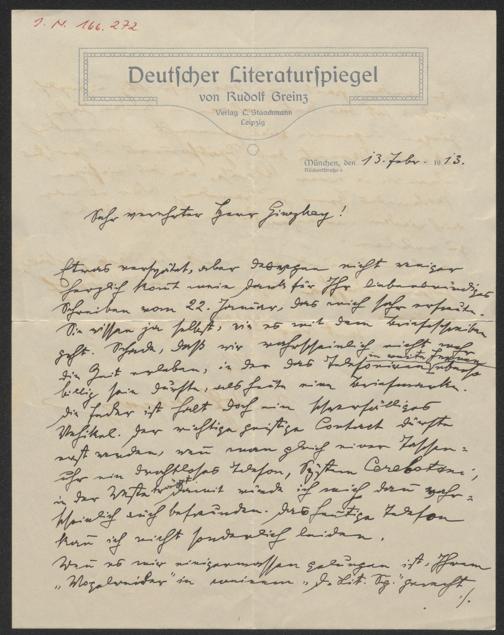 I. N. 166.272
Deutscher Literaturspiegel
von Rudolf Greinz
Verlag L. Staackmann
Leipzig
München, den 13. Febr. 1913.
Sehr verehrter Herr Ginzkey!
Etwas verspätet, aber deswegen nicht weniger
herzlich kommt mein Dank für Ihr liebenswürdiges
Schreiben vom 22. Januar, das mich sehr erfreute.
Sie wissen ja selbst, wie es mit dem Briefschreiben
geht. Schade, daß wir wahrscheinlich nicht mehr
die Zeit erleben, in der das Telefonieren in weite ebenso
billig sein dürfte, als heute eine Briefmarke.
Die Feder ist halt doch ein schwerfälliges
Vehikel. Der richtige geistige Contact dürfte
erst werden, wenn man gleich einer Taschen-
uhr ein drahtloses Telefon, System Cerebotani,
in der Weste trägt. Damit würde ich mich dann wahr-
scheinlich auch befreunden. Das heutige Telefon
kann ich nicht sonderlich leiden.
Wenn es mir einigermassen gelungen ist, Ihrem
„Vogelweider" in meinem „D. Lit. Sp." gerecht
./.